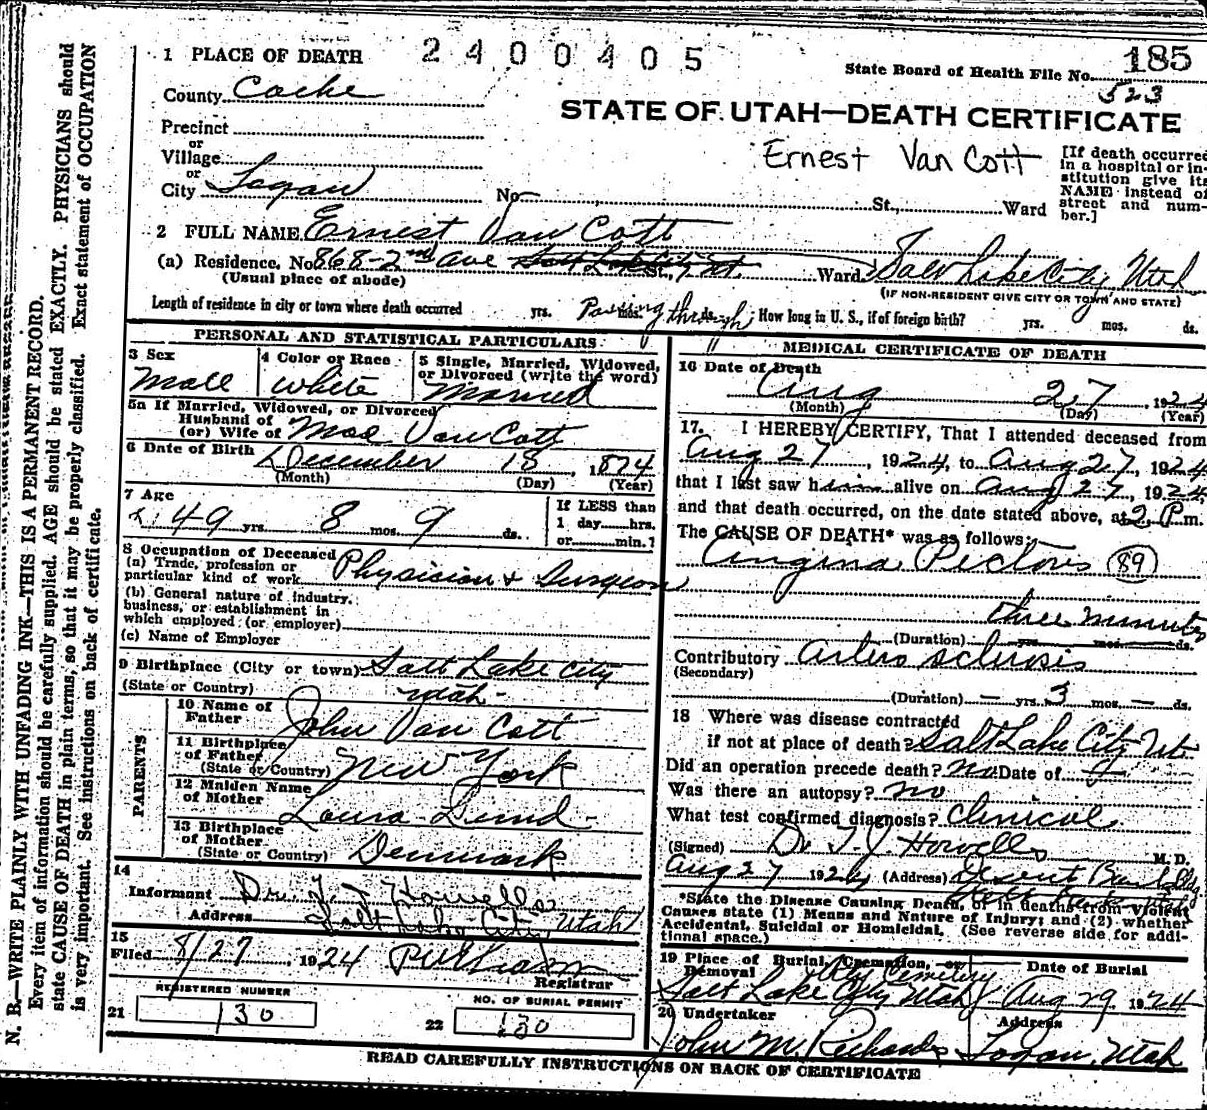 2400405
1 PLACE OF DEATH
State Board of Health File No. 185
523
County Cache
STATE OF UTAH—DEATH CERTIFICATE
Precinct
or
Village
or
City Logan No. St., Ward
Ernest Van Cott
[If death occurred
in a hospital or in-
stitution give its
NAME instead of
street and num-
ber.]
2 FULL NAME Ernest Van Cott
(a) Residence, No. 868-2nd Ave Salt Lake City, Ut. St., Ward Salt Lake City Utah
(Usual place of abode)
(IF NON-RESIDENT GIVE CITY OR TOWN AND STATE)
Length of residence in city or town where death occurred yrs. mos. ds. Passing through How long in U. S., if of foreign birth? yrs. mos. ds.
PERSONAL AND STATISTICAL PARTICULARS
3 Sex
Male
4 Color or Race
white
5 Single, Married, Widowed,
or Divorced (write the word)
Married
5a If Married, Widowed, or Divorced
Husband of
(or) Wife of Mae Van Cott
6 Date of Birth December 18, 1874
(Month) (Day) (Year)
7 Age
49 yrs. 8 mos. 9 ds.
If LESS than
1 day hrs.
or min.?
8 Occupation of Deceased
(a) Trade, profession or
particular kind of work Physician & Surgeon
(b) General nature of industry,
business, or establishment in
which employed (or employer)
(c) Name of Employer
9 Birthplace (City or town) Salt Lake City
(State or Country) Utah
PARENTS
10 Name of
Father John Van Cott
11 Birthplace
of Father
(State or Country) New York
12 Maiden Name
of Mother Laura Lund
13 Birthplace
of Mother
(State or Country) Denmark
14
Informant Dr. T. J. Howells
Address Salt Lake City, Utah
15
Filed 8/27, 1924
Registrar
REGISTERED NUMBER
21 130
NO. OF BURIAL PERMIT
22 130
MEDICAL CERTIFICATE OF DEATH
16 Date of Death
Aug 27, 1924
(Month) (Day) (Year)
17. I HEREBY CERTIFY, That I attended deceased from
Aug 27, 1924, to Aug 27, 1924
that I last saw him alive on Aug 27, 1924,
and that death occurred, on the date stated above, at 2 P.m.
The CAUSE OF DEATH* was as follows:
Angina Pectoris (89)
three minutes
(Duration) yrs. mos. ds.
Contributory Arterio sclerosis
(Secondary)
(Duration) — yrs. 3 mos. — ds.
18 Where was disease contracted
if not at place of death? Salt Lake City Ut.
Did an operation precede death? no Date of
Was there an autopsy? no
What test confirmed diagnosis? Clinical
(Signed) Dr. T. J. Howells M. D.
Aug 27 1924 (Address) Deseret Bank Bldg
*State the Disease Causing Death, or in deaths from Violent
Causes state (1) Means and Nature of Injury; and (2) whether
Accidental, Suicidal or Homicidal. (See reverse side for addi-
tional space.)
19 Place of Burial, Cremation, or
Removal City Cemetery
Salt Lake City Utah
Date of Burial
Aug 29 1924
20 Undertaker
John M. Richards
Address
Logan, Utah
READ CAREFULLY INSTRUCTIONS ON BACK OF CERTIFICATE
N. B.—WRITE PLAINLY WITH UNFADING INK—THIS IS A PERMANENT RECORD.
Every item of information should be carefully supplied. AGE should be stated EXACTLY. PHYSICIANS should
state CAUSE OF DEATH in plain terms, so that it may be properly classified. Exact statement of OCCUPATION
is very important. See instructions on back of certificate.